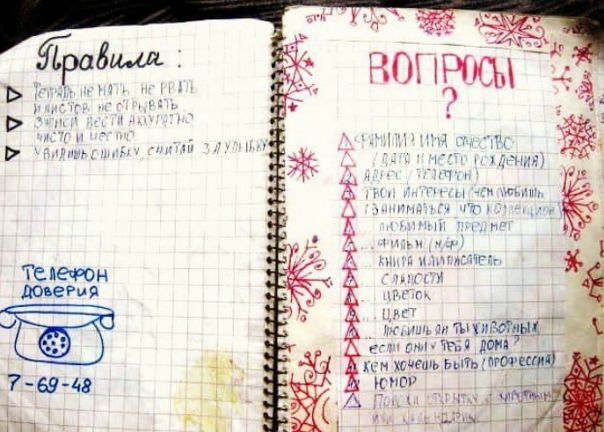 Правила:
ТЕТРАДЬ НЕ МЯТЬ НЕ РВАТЬ
И ЛИСТОВ НЕ ОТРЫВАТЬ
ЗАПИСИ ВЕСТИ АККУРАТНО
ЧИСТО И ЧЕСТНО
УВИДИШЬ ОШИБКУ, СЧИТАЙ ЗА УЛЫБКУ
ТЕЛЕФОН
ДОВЕРИЯ
7-69-48
ВОПРОСЫ
?
ФАМИЛИЯ ИМЯ ОТЧЕСТВО
(ДАТА И МЕСТО РОЖДЕНИЯ)
АДРЕС (ТЕЛЕФОН)
ТВОИ ИНТЕРЕСЫ (ЧЕМ ЛЮБИШЬ
ЗАНИМАТЬСЯ, ЧТО
ЛЮБИМЫЙ ПРЕДМЕТ
... ФИЛЬМ (М/Ф)
... КНИГА ИЛИ ПИСАТЕЛЬ
... СЛАДОСТИ
... ЦВЕТОК
... ЦВЕТ
ЛЮБИШЬ ЛИ ТЫ ЖИВОТНЫХ
ЕСЛИ ОНИ У ТЕБЯ ДОМА?
КЕМ ХОЧЕШЬ БЫТЬ (ПРОФЕССИЯ)
ЮМОР
ОТКРЫТКУ С
ИЛИ